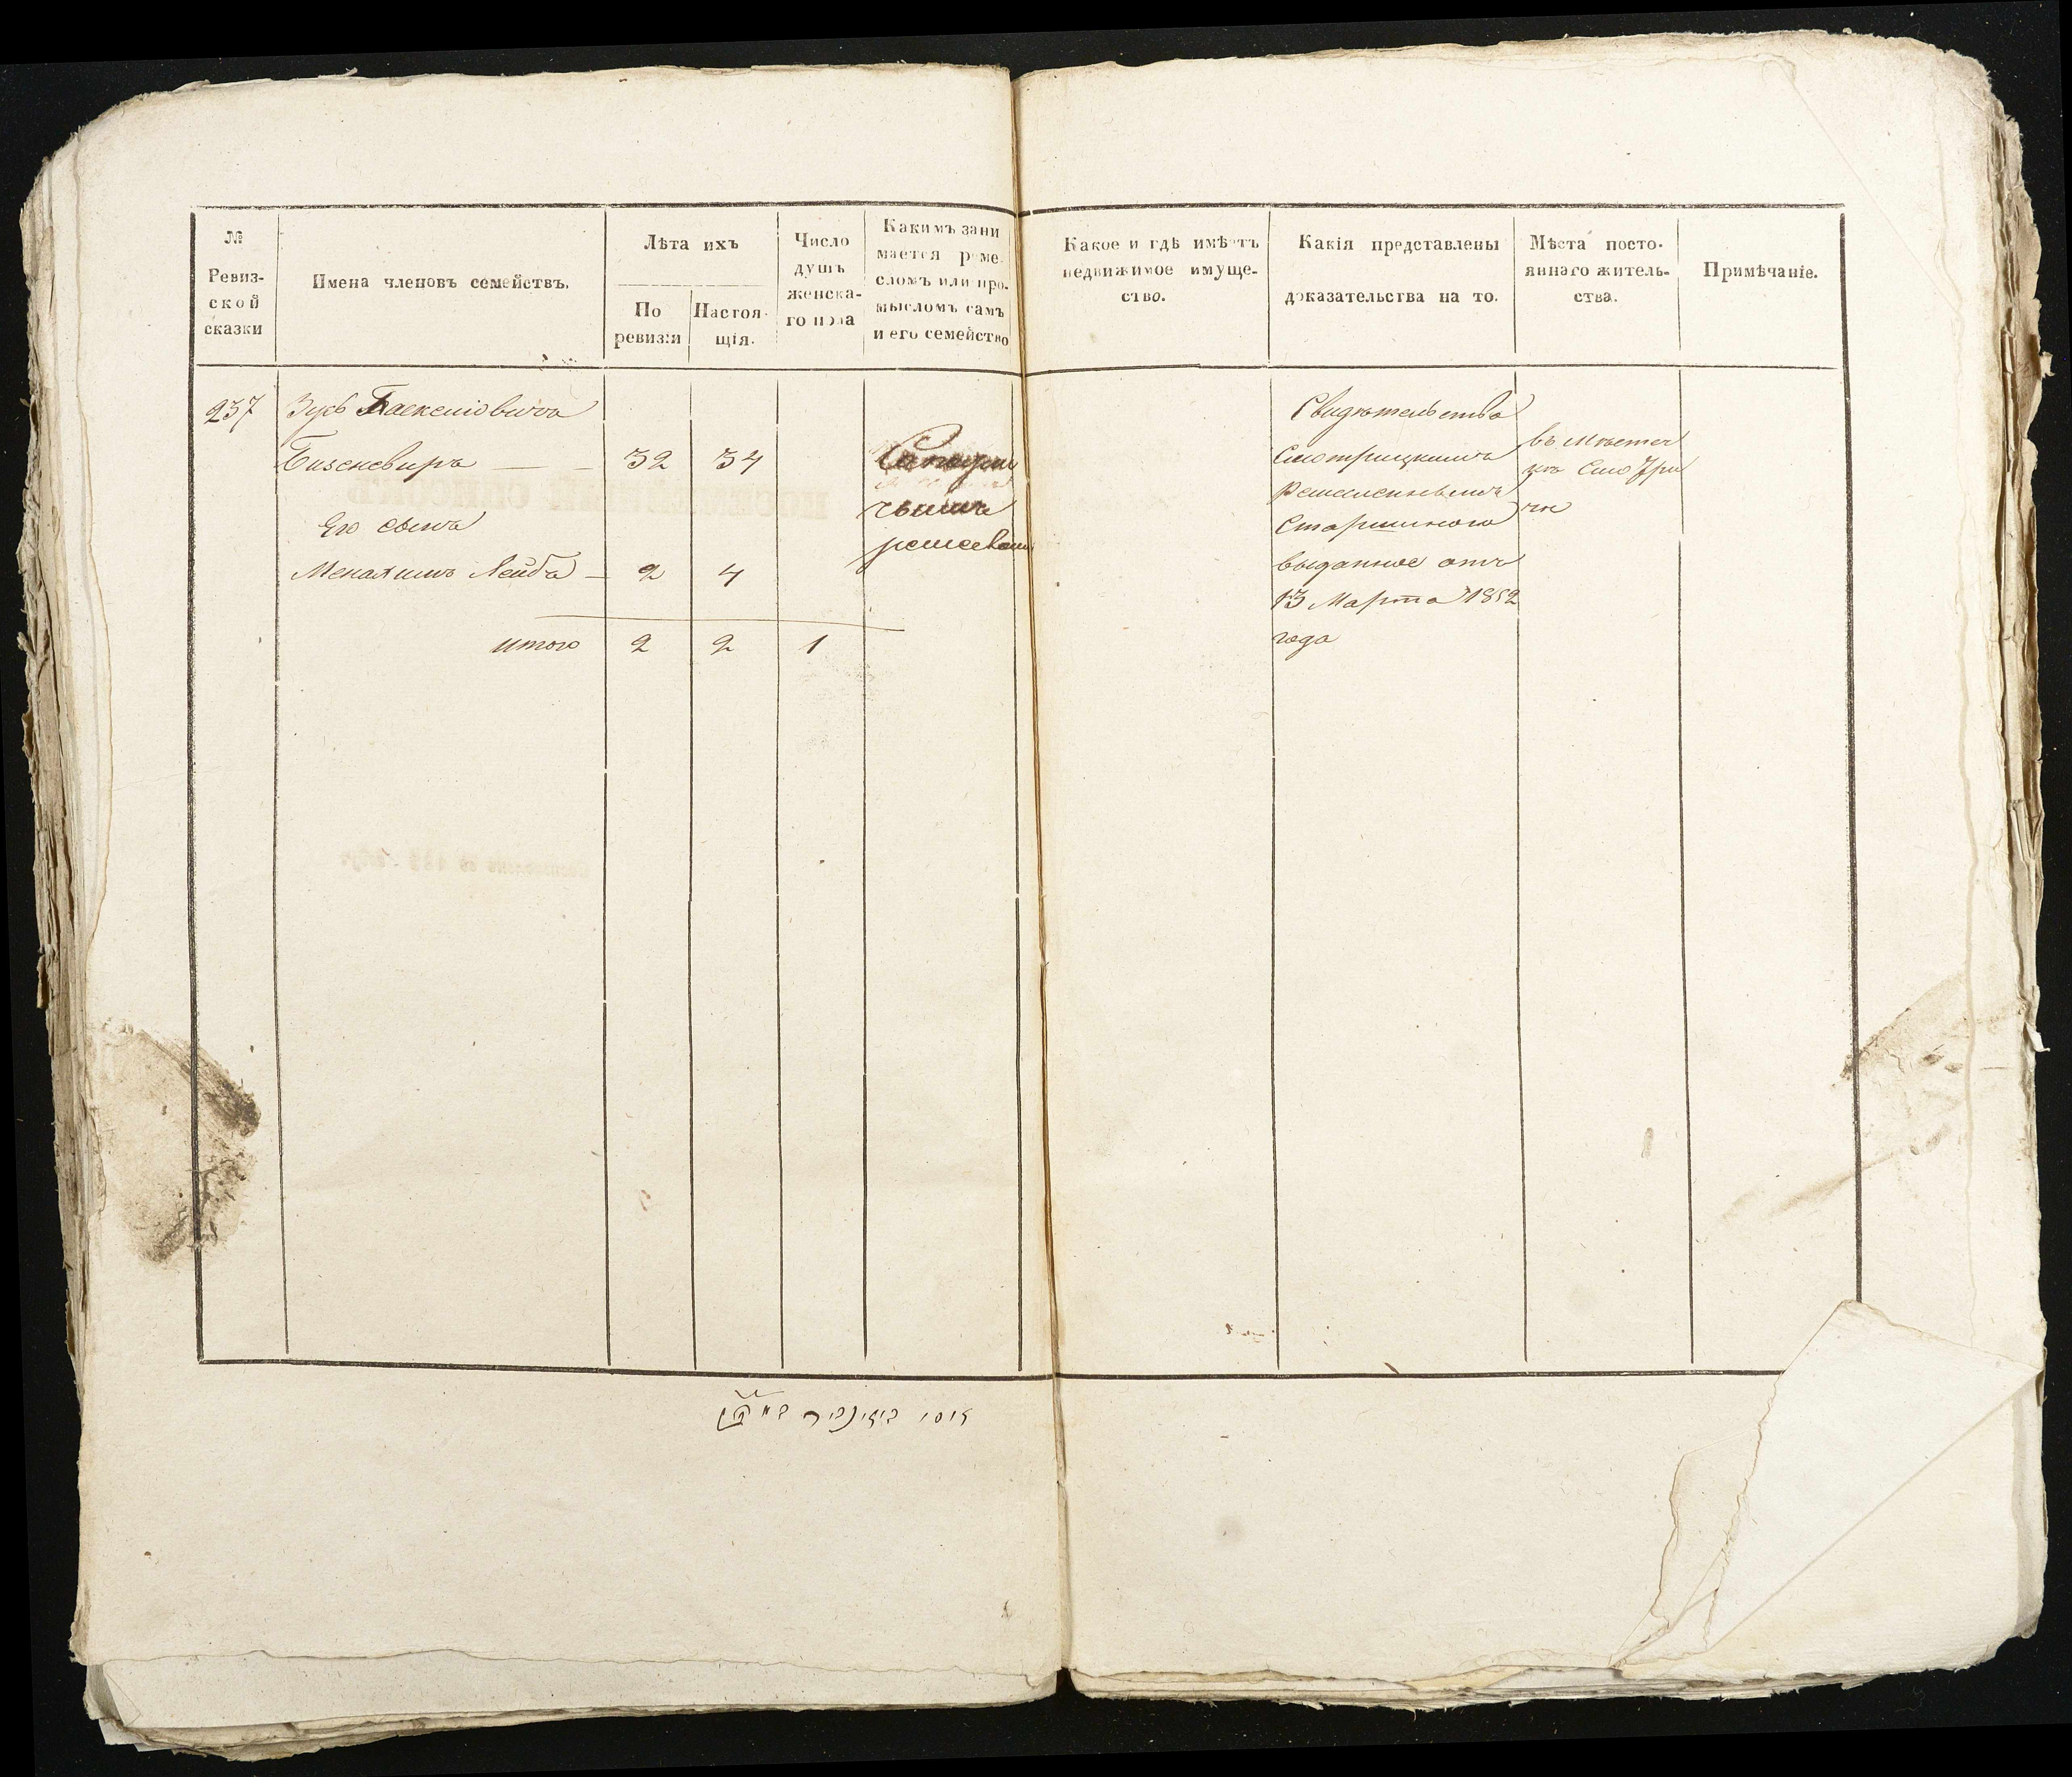 №
Ревиз-
ской
сказки
Имена членовъ семействъ.
Лѣта ихъ
По
ревизіи
Настоя-
щія.
Число
душъ
женска-
го пола
Какимъ зани
мается реме-
сломъ или про-
мысломъ самъ
и его семейство
Какое и гдѣ имѣетъ
недвижимое имуще-
ство.
Какія представлены
доказательства на то.
Мѣста посто-
яннаго житель-
ства.
Примѣчаніе.
237 Зусь
Бизеневиръ — 32 34
Его сынъ
Менахимъ Лейба — 2 4
итого 2 2 1
Сапожни
чьимъ
ремесломъ
Свидѣтельство
Смотрицкимъ
Ремесленнымъ
Старшиною
выданное отъ
13 Марта 1852
года
въ мѣстеч
кѣ Смотри
чѣ